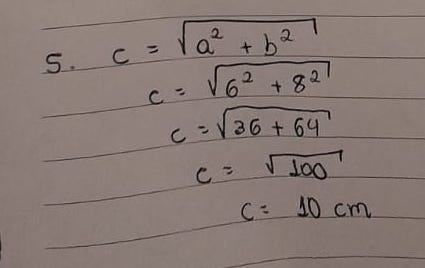 5. c = √(a² + b²)
c = √(6² + 8²)
c = √(36 + 64)
c = √100
c = 10 cm